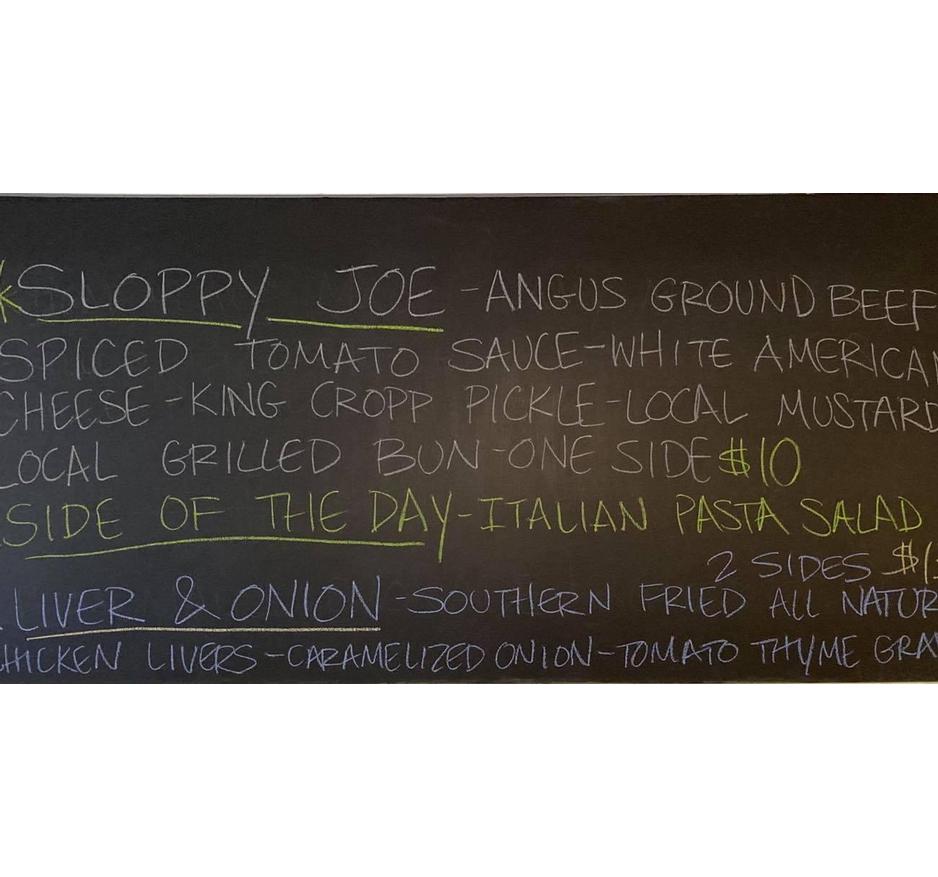 SLOPPY JOE - ANGUS GROUND BEEF
SPICED TOMATO SAUCE - WHITE AMERICAN
CHEESE - KING CROPP PICKLE - LOCAL MUSTARD
LOCAL GRILLED BUN - ONE SIDE $10
SIDE OF THE DAY - ITALIAN PASTA SALAD
2 SIDES
LIVER & ONION - SOUTHERN FRIED ALL
CHICKEN LIVERS - CARAMELIZED ONION - TOMATO THYME